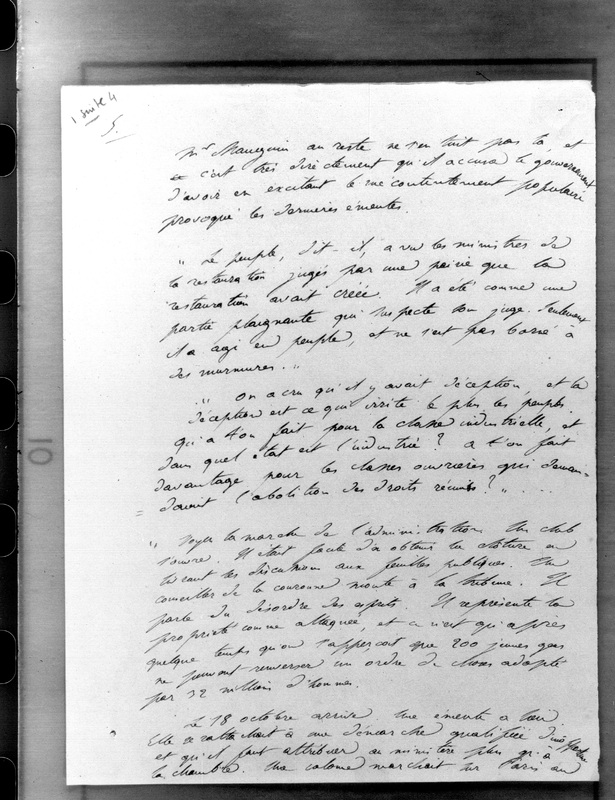 1 suite 4
5.
Mr Mauguin au reste ne s'en tint pas là, et
c'est très directement qu'il accusa le gouvernement
d'avoir en excitant le mécontentement populaire
provoqué les dernières émeutes.
" Le peuple, dit-il, a vu les ministres de
la restauration jugés par une pairie que la
restauration avait créée. Il a été comme une
partie plaignante qui suspecte son juge. Seulement
il a agi en peuple, et ne s'est pas borné à
des murmures. "
" On a cru qu'il y avait déception, et la
déception est ce qui irrite le plus les peuples.
qu'a t'on fait pour la classe industrielle, et
dans quel état est l'industrie? a t'on fait
davantage pour les classes ouvrières qui deman-
=daient l'abolition des droits réunis? " ....
" Voyez la marche de l'administration. Un club
s'ouvre. Il était facile d'en obtenir la clôture en
livrant ses discussions aux feuilles publiques. Un
conseiller de la couronne monte à la tribune. Il
parle du désordre des esprits. Il représente la
propriété comme attaquée, et ce n'est qu'après
quelque temps qu'on s'aperçoit que 200 jeunes gens
ne peuvent renverser un ordre de choses adopté
par 32 millions d'hommes.
Le 18 octobre arrive. Une émeute a lieu.
Elle se rattachait à une démarche qualifiée
et qu'il faut attribuer au ministère plus qu'à
la chambre. Une colonne marchait sur Paris au
10